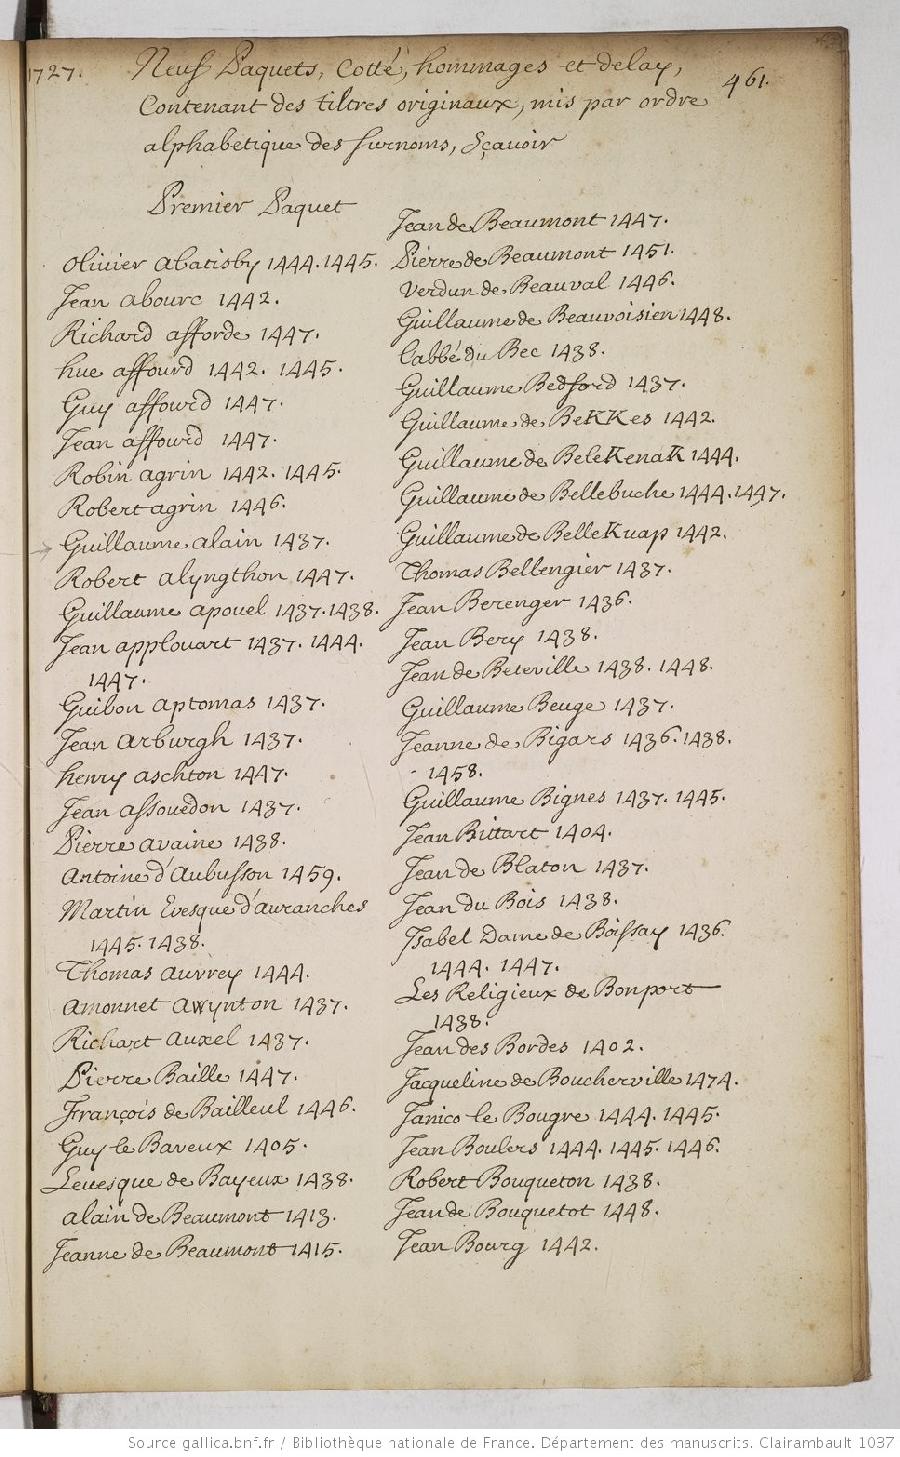 1727.
Neuf Paquets, Cotté, hommages et delay,
461.
Contenant des tiltres originaux, mis par ordre
alphabetique des surnoms, Sçauoir
Premier Paquet
Olivier abatisby 1444. 1445.
Jean abourc 1442.
Richard afforde 1447.
hue affourd 1442. 1445.
Guy affourd 1447.
Jean affourd 1447.
Robin agrin 1442. 1445.
Robert agrin 1446.
Guillaume alain 1437.
Robert alyngthon 1447.
Guillaume apouel 1437. 1438.
Jean applouart 1437. 1444.
1447.
Guibon aptomas 1437.
Jean arburgh 1437.
henry aschton 1447.
Jean assouedon 1437.
Pierre avaine 1438.
antoine d'Aubusson 1459.
Martin Evesque d'auranches
1445. 1438.
Thomas auvrey 1444.
amonnet awynton 1437.
Richart auxel 1437.
Pierre Baille 1447.
François de Bailleul 1446.
Guy le Baveux 1405.
Leuesque de Bayeux 1438.
alain de Beaumont 1413.
Jeanne de Beaumont 1415.
Jean de Beaumont 1447.
Pierre de Beaumont 1451.
Verdun de Beauval 1446.
Guillaume de Beauvoisien 1448.
Labbé du Bec 1438.
Guillaume Bedford 1437.
Guillaume de BeKKes 1442.
Guillaume de BeleKenaK 1444.
Guillaume de Bellebuche 1444. 1447.
Guillaume de BelleKuap 1442.
Thomas Bellengier 1437.
Jean Berenger 1436.
Jean Bery 1438.
Jean de Beteville 1438. 1448.
Guillaume Beuge 1437.
Jeanne de Bigars 1436. 1438.
1458.
Guillaume Bignes 1437. 1445.
Jean Bittart 1404.
Jean de Blaton 1437.
Jean du Bois 1438.
Isabel Dame de Boissay 1436.
1444. 1447.
Les Religieux de Bonport
1438.
Jean des Bordes 1402.
Jacqueline de Boucherville 1474.
Janico le Bougre 1444. 1445.
Jean Boulers 1444. 1445. 1446.
Robert Bouqueton 1438.
Jean de Bouquetot 1448.
Jean Bourg 1442.
Source gallica.bnf.fr / Bibliothèque nationale de France. Département des manuscrits. Clairambault 1037